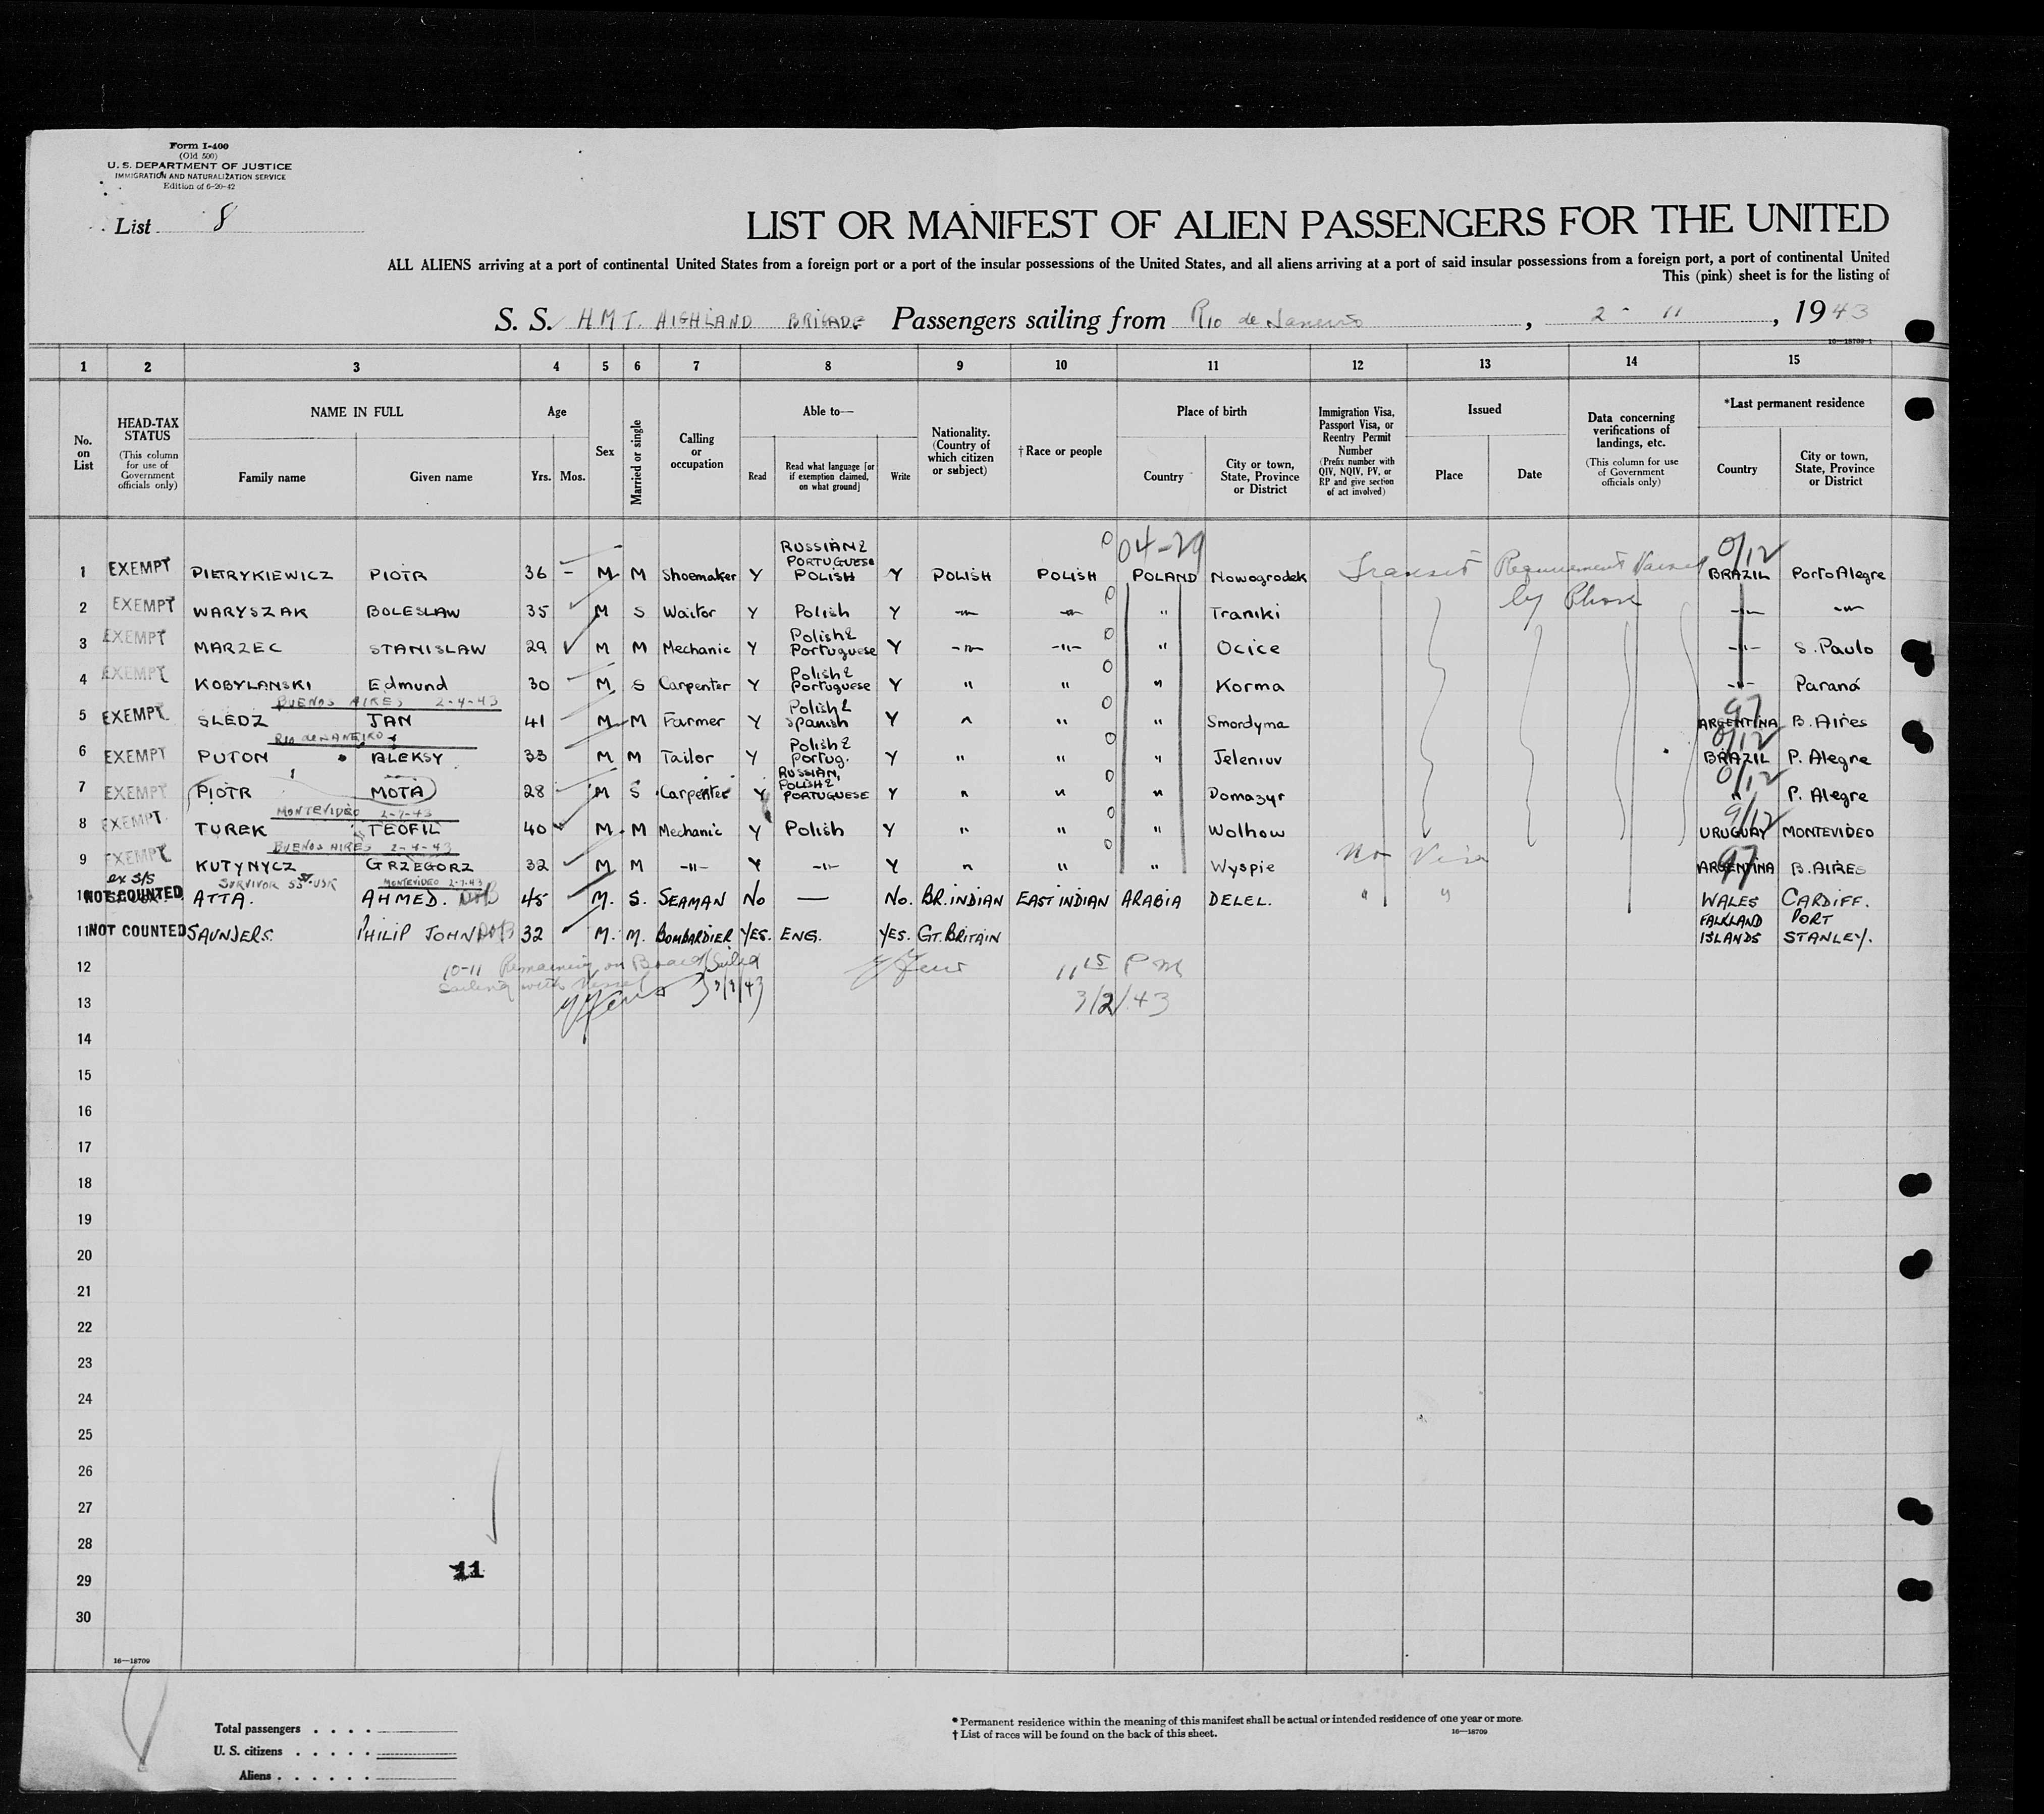 Form I-400
(Old 500)
U. S. DEPARTMENT OF JUSTICE
IMMIGRATION AND NATURALIZATION SERVICE
Edition of 6-20-42
List 8
LIST OR MANIFEST OF ALIEN PASSENGERS FOR THE UNITED
ALL ALIENS arriving at a port of continental United States from a foreign port or a port of the insular possessions of the United States, and all aliens arriving at a port of said insular possessions from a foreign port, a port of continental United
This (pink) sheet is for the listing of
S. S. HMT. HIGHLAND BRIGADE Passengers sailing from Rio de Janeiro, 2 - 11, 1943
16—18709-1
1 2 3 4 5 6 7 8 9 10 11 12 13 14 15
No. on List
HEAD-TAX STATUS (This column for use of Government officials only)
NAME IN FULL Family name Given name
Age Yrs. Mos.
Sex
Married or single
Calling or occupation
Able to— Read Read what language [or if exemption claimed, on what ground] Write
Nationality. (Country of which citizen or subject)
†Race or people
Place of birth Country City or town, State, Province or District
Immigration Visa, Passport Visa, or Reentry Permit Number (Prefix number with QIV, NQIV, PV, or RP and give section of act involved)
Issued Place Date
Data concerning verifications of landings, etc. (This column for use of Government officials only)
*Last permanent residence Country City or town, State, Province or District
04-29 0/12
1 EXEMPT PIETRYKIEWICZ PIOTR 36 - M M Shoemaker Y RUSSIAN & PORTUGUESE POLISH Y POLISH POLISH POLAND Nowogrodek Transit Requirement Waived BRAZIL Porto Alegre
by Phone
2 EXEMPT WARYSZAK BOLESLAW 35 M S Waitor Y Polish Y -"- -"- " Traniki -"- -"-
3 EXEMPT MARZEC STANISLAW 29 M M Mechanic Y Polish & Portuguese Y -"- -"- " Ocice -"- S. Paulo
4 EXEMPT KOBYLANSKI Edmund 30 M S Carpenter Y Polish & Portuguese Y " " " Korma -"- Paraná
BUENOS AIRES 2-4-43 97
5 EXEMPT SLEDZ JAN 41 M M Farmer Y Polish & Spanish Y " " " Smordyma ARGENTINA B. Aires
RIO de JANEIRO 0/12
6 EXEMPT PUTON ALEKSY 33 M M Tailor Y Polish & Portug. Y " " " Jeleniuv BRAZIL P. Alegre
0/12
7 EXEMPT PIOTR MOTA 28 M S Carpenter Y RUSSIAN, POLISH & PORTUGUESE Y " " " Domazyr " P. Alegre
MONTEVIDEO 2-7-43 9/12
8 EXEMPT TUREK TEOFIL 40 M M Mechanic Y Polish Y " " " Wolhow URUGUAY MONTEVIDEO
BUENOS AIRES 2-4-43 97
9 EXEMPT KUTYNYCZ GRZEGORZ 32 M M -"- Y -"- Y " " " Wyspie No Visa ARGENTINA B. AIRES
ex S/S SURVIVOR MONTEVIDEO 2-7-43
10 NOT COUNTED ATTA. AHMED. 45 M. S. SEAMAN No — No. BR. INDIAN EAST INDIAN ARABIA DELEL. " " WALES CARDIFF.
11 NOT COUNTED SAUNDERS. PHILIP JOHN 32 M. M. BOMBARDIER YES. ENG. YES. GT. BRITAIN FALKLAND ISLANDS PORT STANLEY.
12 10-11 Remaining on Board 11 15 P M
sailing with Vessel
13 3/2/43
14
15
16
17
18
19
20
21
22
23
24
25
26
27
28
29 11
30
16—18709
Total passengers . . . .
U. S. citizens . . . . .
Aliens . . . . . .
* Permanent residence within the meaning of this manifest shall be actual or intended residence of one year or more.
† List of races will be found on the back of this sheet. 16—18709